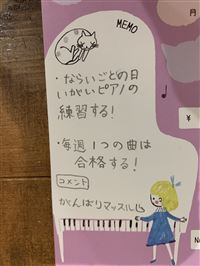 円
MEMO
・ならいごとの日
いがいピアノの
練習する!
¥
・毎週1つの曲は
合格する!
コメント
がんばりマッスル